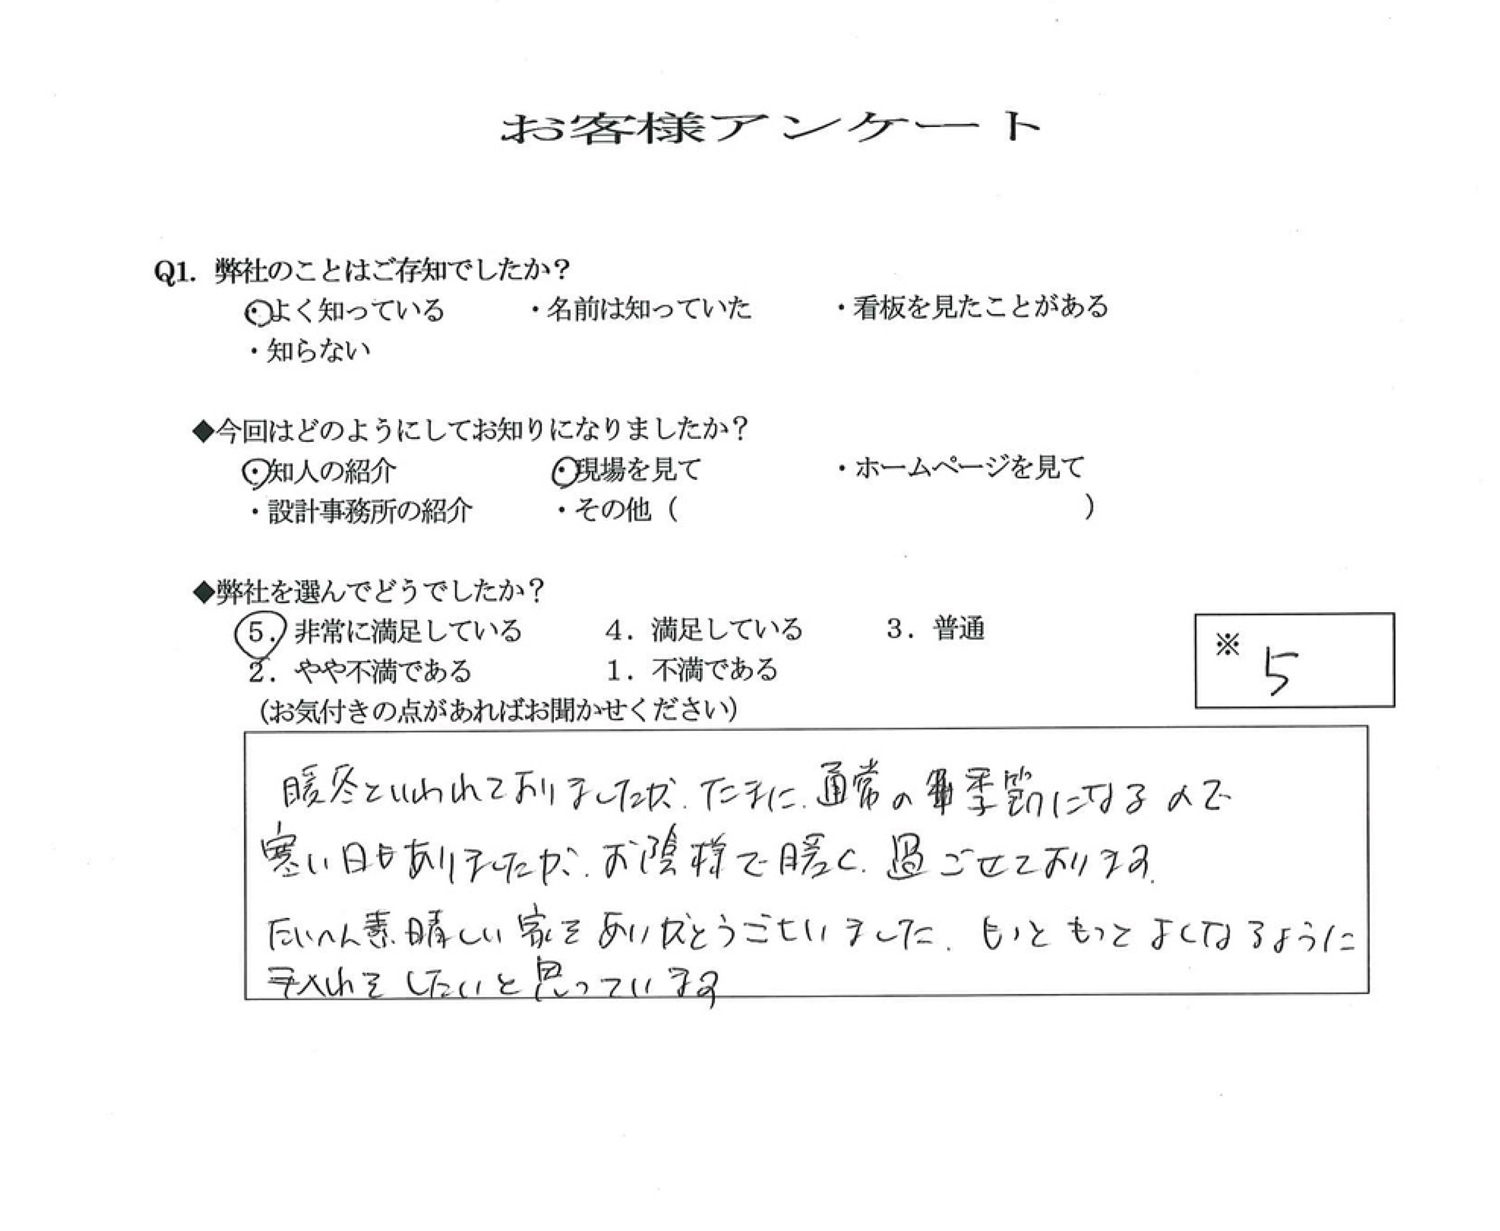 お客様アンケート
Q1. 弊社のことはご存知でしたか？
・よく知っている ・名前は知っていた ・看板を見たことがある
・知らない
◆今回はどのようにしてお知りになりましたか？
・知人の紹介 ・現場を見て ・ホームページを見て
・設計事務所の紹介 ・その他（ ）
◆弊社を選んでどうでしたか？
5．非常に満足している 4．満足している 3．普通
2．やや不満である 1．不満である
※ 5
（お気付きの点があればお聞かせください）
暖冬といわれておりましたが、たまに、通常の季節になるので
寒い日もありましたが、お陰様で暖く、過ごせております。
たいへん素晴しい家をありがとうございました。もっともっとよくなるように
手入れをしたいと思っています